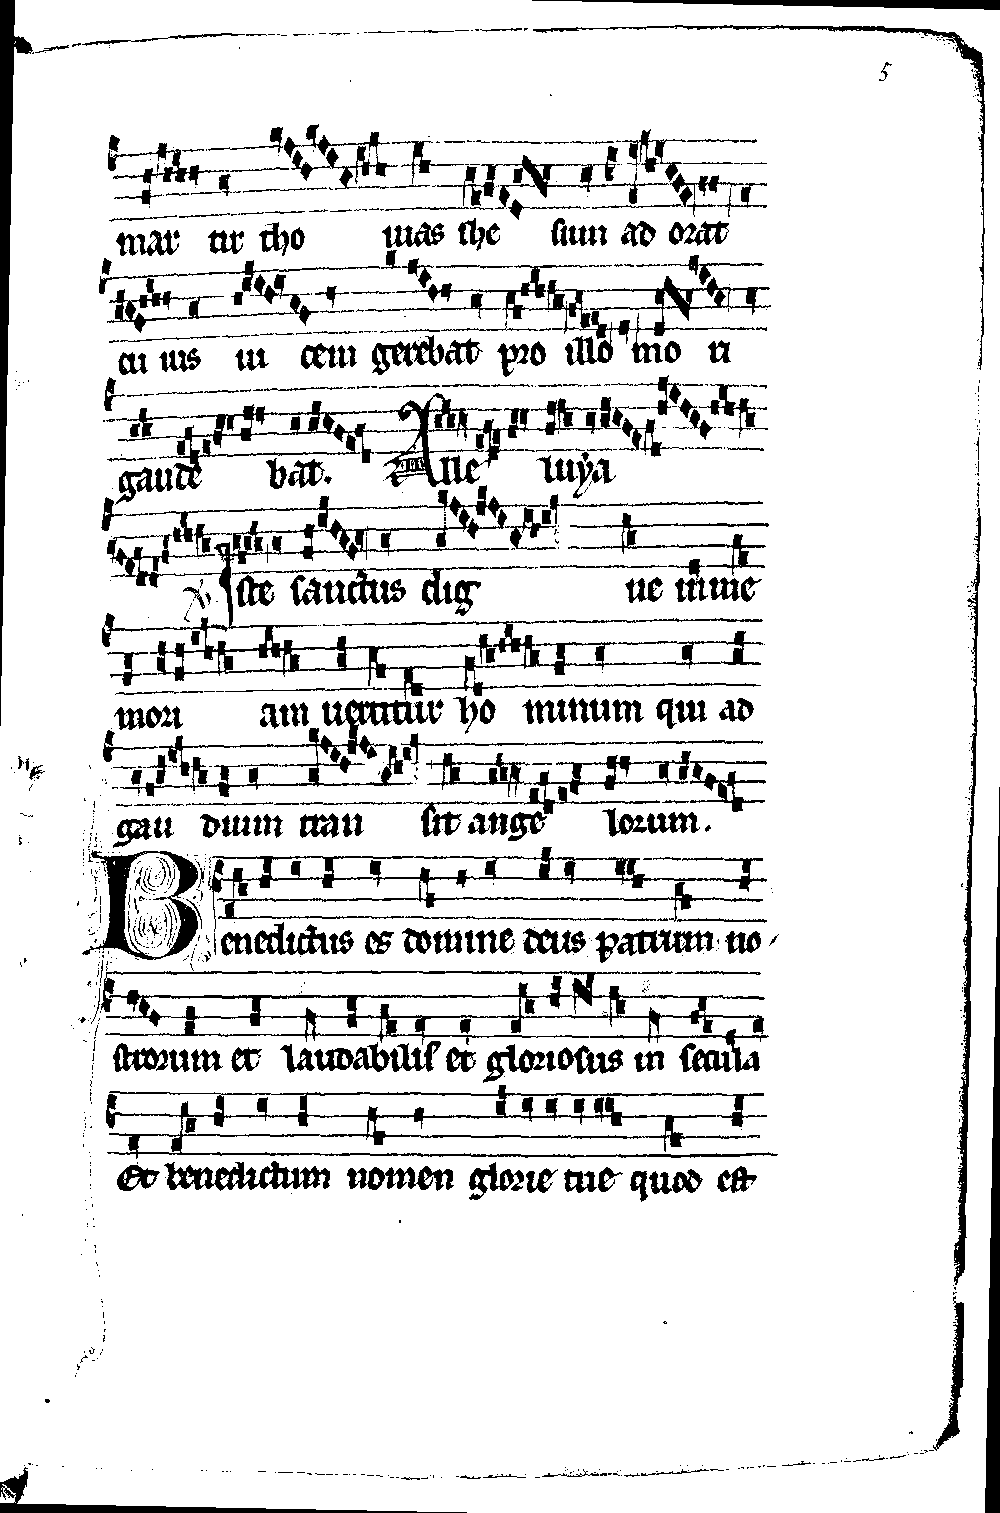 5
mar tir tho mas ihe sum ad orat
cu ius ui cem gerebat pro illo mo ri
gaude bat. Alle luya
Iste sanctus dig ne in me
mori am uertitur ho minum qui ad
gau dium tran sit ange lorum.
Benedictus es domine deus patrum no
strorum et laudabilis et gloriosus in secula
Et benedictum nomen glorie tue quod est